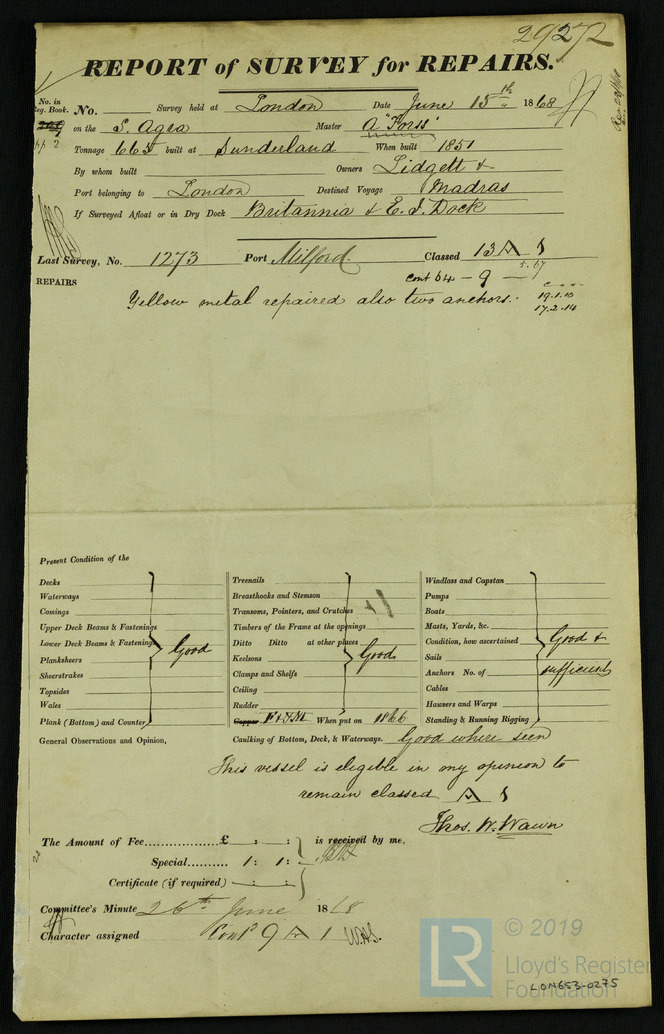 29272
REPORT of SURVEY for REPAIRS.
No. in Reg. Book. No. Survey held at London Date June 15th 1868
on the S. Agra Master A "Forss"
Tonnage 665 built at Sunderland When built 1851
By whom built Owners Lidgett &
Port belonging to London Destined Voyage Madras
If Surveyed Afloat or in Dry Dock Britannia & E. I. Dock
Last Survey, No. 1273 Port Milford Classed 13 A 1
5.67
REPAIRS cont 64 - 9 - 1
Yellow metal repaired also two anchors.
19.1.10
17.2.14
Present Condition of the
Decks
Waterways
Comings
Upper Deck Beams & Fastenings
Lower Deck Beams & Fastenings Good
Planksheers
Sheerstrakes
Topsides
Wales
Plank (Bottom) and Counter
Treenails
Breasthooks and Stemson
Transoms, Pointers, and Crutches
Timbers of the Frame at the openings
Ditto Ditto at other places
Keelsons Good
Clamps and Shelfs
Ceiling
Rudder
Copper F & YM When put on 1866
Windlass and Capstan
Pumps
Boats
Masts, Yards, &c.
Condition, how ascertained Good &
Sails
Anchors No. of sufficient
Cables
Hawsers and Warps
Standing & Running Rigging
General Observations and Opinion, Caulking of Bottom, Deck, & Waterways. Good where seen
This vessel is eligible in my opinion to
remain classed A 1
Thos. W. Wawn
The Amount of Fee £ : : is received by me,
Special 1 : 1 :
Certificate (if required) : :
Committee's Minute 26th June 1868
Character assigned Cont 9 A 1
© 2019
LR
Lloyd's Register
Foundation
LON653-0275